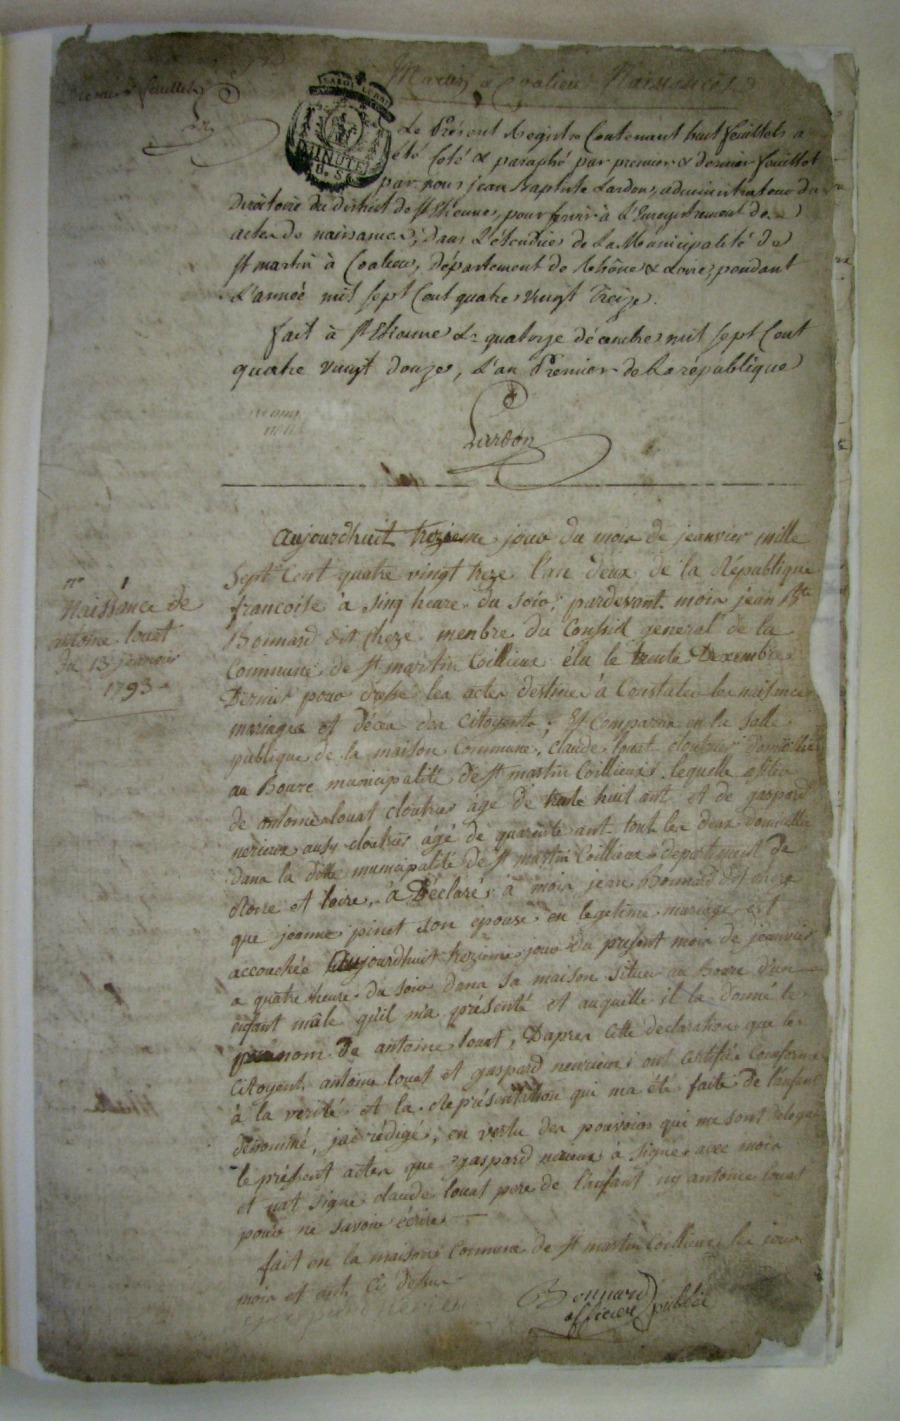 St Martin à Coalieu Naissances
premier feuillet
Le Présent Registre Contenant huit feuillets a
été Coté & paraphé par premier & dernier feuillet
MINUTE
par nous jean Baptiste Lardon, administrateur du
Directoire du district de St Etienne, pour servir à L'Enregistrement des
actes de naissances, dans L'étendue de La Municipalité de
St martin à Coalieu, département de Rhône & Loire, pendant
L'année mil sept Cent quatre vingt Treize.
fait à St Etienne Le quatorze décembre mil sept Cent
quatre vingt douze, L'an Premier de La république
Lardon
aujourdhuit treizieme jour du mois de jeanvier mille
Sept Cent quatre vingt treze l'an deux de la République
francoise à sinq heure du soir, pardevant moin jean Bte
Bonnard dit cheze menbre du Conseil general de la
Commune de St martin Coillieux élu le trente Dexembre
Dernier pour dresse les actes destiné à Constater les naisences
mariages et décéa des Citoyents, Est Comparru en la salle
publique de la maison Commune, claude louat cloutrier domicillié
au Boure municipalité de St martin Coillieux, lequelle asstée
de antoine louat cloutrier âgé de trente huit ant et de gaspard
nerieux aussy cloutrier âgé de quarente ant tout les deux domicillié
dans la ditte municipalité de St martin Coillieux departement de
Rone et loire, à Déclaré à moin jean Bonnard dit cheze
que jeanne pinet son epouse en legetime mariage est
accouchée aujourdhuit treziéme jour du present mois de jeanvier
a quatre heure du soir dans sa maison situee au Boure d'un
enfant mâle qu'il m'a présenté et auquelle il la donné le
prenom de antoine louat, D'aprés Cette declaration que les
Citoyents antoine louat et gaspard nerieux ont Certifiée Conforme
à la verité et la représentation qui ma été faite de l'enfant
denommé, jaé rédigé, en vertu des pouvoirs qui me sont delegué
le présent actes que gaspard nerieux à signé avec moin
et nat signé claude louat pere de l'enfant ny antoine louat
pour ne savoir écrire
fait en la maison Commune de St martin Coillieux les jour
mois et ant Ci desus
Bonnard
officiere public
no
Naissance de
antoine louat
du 13 jeanvier
1793